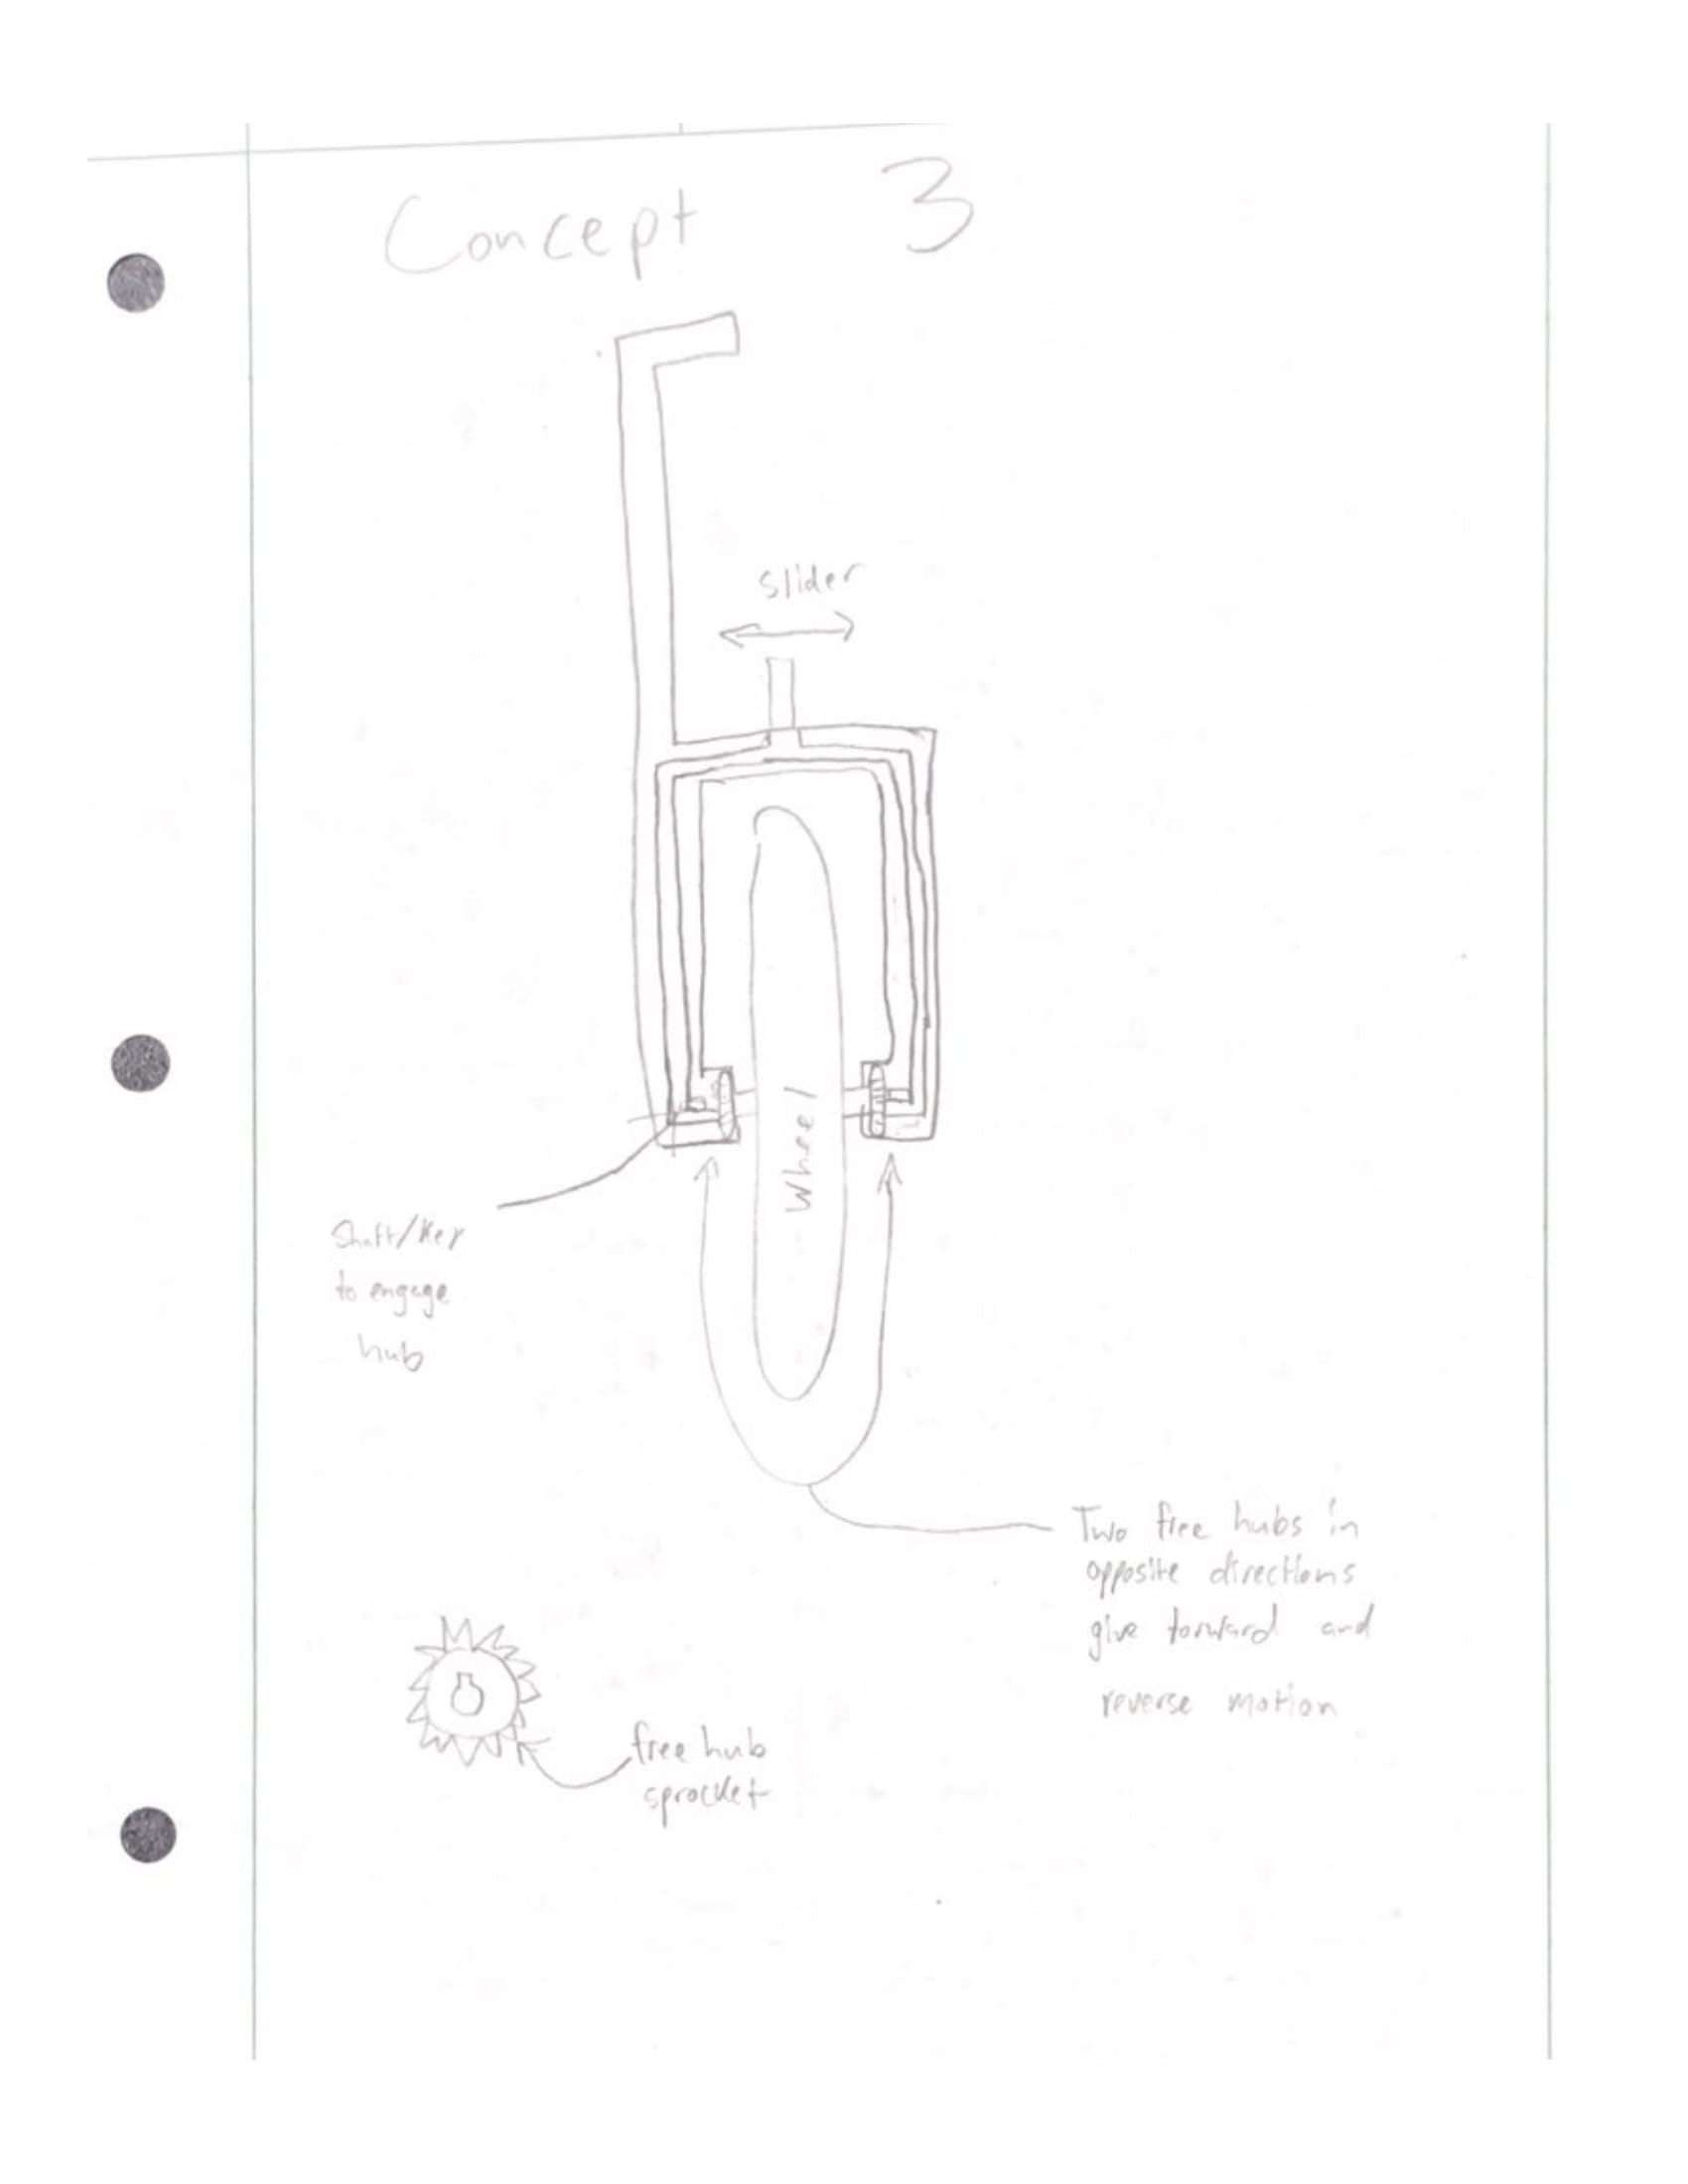 Concept 3
slider
Wheel
Shaft/Key
to engage
hub
Two free hubs in
opposite directions
give forward and
reverse motion
free hub
sprocket